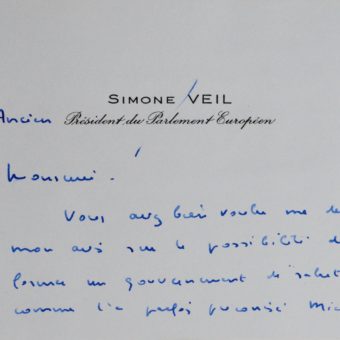 SIMONE VEIL
Ancien Président du Parlement Européen
Monsieur.
Vous avez bien voulu me de
mon avis sur la possibilité d
former un gouvernement de salut
comme l'a parfois préconisé Mic